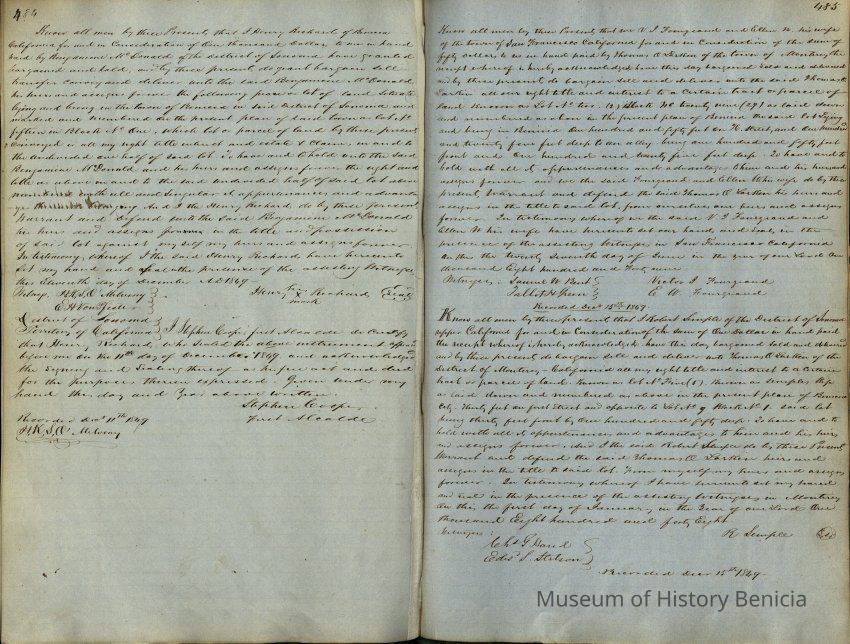 484
Know all men by these Presents, that I Henry Richards of Sonoma
California for and in Consideration of One thousand Dollar to me in hand
paid by Benjamin McDonald of the district of Sonoma have granted
bargained and sold, and by these presents do grant bargain Sell
transfer convey and deliver unto the said Benjamin McDonald
his heirs and assigns forever the following piece or lot of land situate
lying and being in the town of Benicia in said District of Sonoma and
marked and numbered on the present plan of said town as lot No
fifteen in Block No One, which lot or parcel of land by these presents
Conveyed is all my right title interest and estate & Claim, in and to
the undivided one half of said lot. To have and to hold unto the said
Benjamin McDonald and his heirs and assigns forever the right and
title in and to the said undivided half of said lot
with all and Singular it appurtenances and advantages
And I the Henry Richard, do by these presents
Warrant and Defend unto the said Benjamin McDonald
his heirs and assigns forever in the title and possession
of said lot against myself my heirs and assigns forever.
In testimony, whereof I the said Henry Richard have hereunto
Set my hand and seal in the presence of the assisting Witnesses
this Eleventh day of december A.D 1849
Witness. H.K.S.O. Melveny
E. H. Von Pfister
Henry his X mark Richard (Seal)
District of Sonoma
Territory of California } I Stephen Cooper first Alcalde do Certify
that Henry Richard, who Seald the above instrument appeard
before me on the 11th day of December 1849 and acknowledged
the Signing and Sealing thereof as his free act and deed
for the purposes therein expressed. Given under my
hand the day and Year above written.
Stephen Cooper
First Alcalde
Recorded Decr 11th 1849
H.K.S.O. Melveny
485
Know all men by these Present, that we V. J Fourgeaud and Ellen W. his wife
of the town of San Francisco California for and in Consideration of the sum of
fifty dollars to us in hand paid by Thomas O Larkin of the town of Monterey, the
receipt whereof is hereby acknowledged, have this day bargained Sold and delivered
and by these presents do bargain sell and deliver unto the said Thomas O
Larkin all our right title and interest to a Certain tract or parcel of
land Known as Lot No two. (2) Block No twenty nine (29) as laid down
and numbered as above in the present plan of Benicia the said lot lying
and being in Benicia One hundred and fifty feet on H. Street, and One hundred
and twenty five feet deep to an alley being one hundred and fifty feet
front and One hundred and twenty five feet deep. To have and to
hold with all it appurtenances and advantages to him and his heirs and
assigns forever and we the said Fourgeaud and Ellen W his wife do by these
present, Warrant and defend the said Thomas O Larkin his heirs and
assigns in the title to said lot. from ourselves our heirs and assigns
forever. In testimony whereof we the said V. J Fourgeaud and
Ellen W his wife have hereunto set our hand, and Seal, in the
presence of the assisting Witnesses in San Francisco California
on this the twenty Seventh day of June in the year of our Lord One
thousand Eight hundred and forty nine
Witnesses, Samuel W. Bent
Talbot H. Green
Victor J Fourgeaud
E. W. Fourgeaud
Recorded Decr 15th 1849
Know all men by these present that I Robert Semple of the District of Sonoma
upper California for and in Consideration of the Sum of One Dollar in hand paid
the receipt whereof is hereby acknowledged, do have this day bargained Sold and delivered
and by these present do bargain sell and deliver unto Thomas O Larkin of the
District of Monterey California all my right title and interest to a Certain
tract or parcel of land. Known as Lot No Five (5). Known as Semples Slip
as laid down and numbered as above in the present plan of Benicia
City. thirty feet on first Street and opposite to Lot No 9 Block No 1. said lot
being thirty feet front by One hundred and fifty deep. To have and to
hold with all it appurtenances and advantages to him and his heirs
and assigns forever. And I the said Robert Semple do by these Present,
Warrant and defend the said Thomas O Larkin heirs and
assigns in the title to said lot. from myself my heirs and assigns
forever. In testimony whereof I have hereunto set my hand
and seal in the presence of the assisting Witnesses in Monterey
On this the first day of January in the Year of our Lord One
thousand Eight hundred and forty Eight
Witnesses:
R Semple
Chs G Bond
Edwd S. Stetson
Recorded Decr 15th 1849
Museum of History Benicia